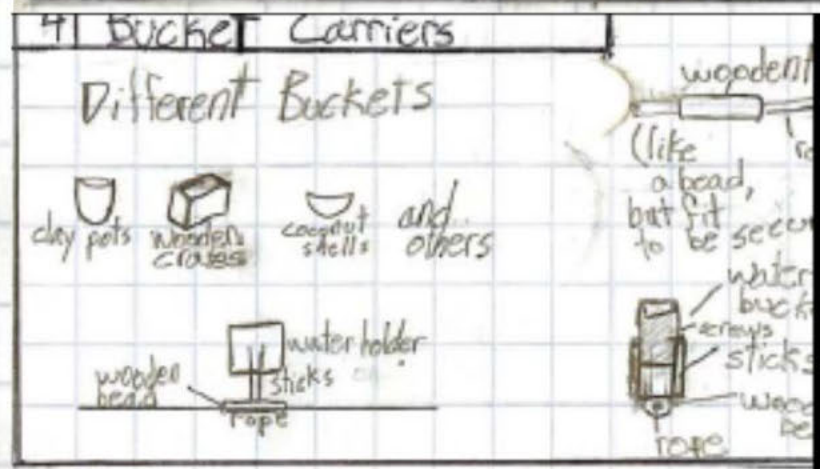 4 Bucket Carriers
Different Buckets
clay pots
wooden
crates
coconut
shells
and
others
water holder
sticks
wooden
bead
rope
wooden
(like
a bead,
but fit
to be
water
screws
sticks
rope